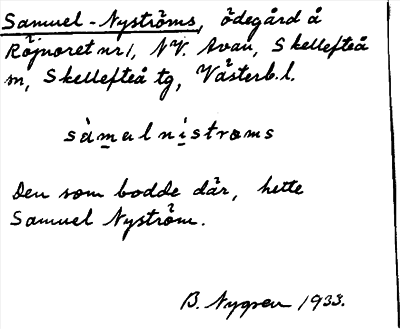 Samuel-Nyströms, ödegård å
Röjnoret nr 1, NV. Avan, Skellefteå
sn, Skellefteå tg, Västerb. l.
sàmalnistrøms
Den som bodde där, hette
Samuel Nyström.
B. Nygren 1933.